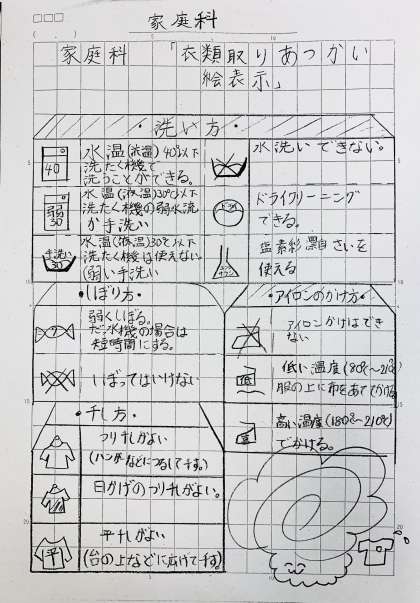 家庭科
家庭科 「衣類取りあつかい
絵表示」
・洗い方・
40
水温(液温)40°以下
洗たく機で
洗うことができる。
弱
30
水温(液温)30℃以下
洗たく機の弱水流
か手洗い
手洗い
30
水温(液温)30℃以下
洗たく機は使えない
(弱い手洗い
水洗いできない。
ドライ
ドライクリーニング
できる。
塩素さらし
を
使える
・しぼり方・
弱くしぼる。
だっ水機の場合は
短時間にする。
しぼってはいけない
・干し方・
つり干しがよい
(ハンガーなどにつるして干す。)
日かげのつり干しがよい。
平
平干しがよい
(台の上などに広げて干す。)
・アイロンのかけ方・
アイロンかけはでき
ない
低
低い温度
服の上に布をあててかける
高
高い温度(180℃〜210℃)
でかける。